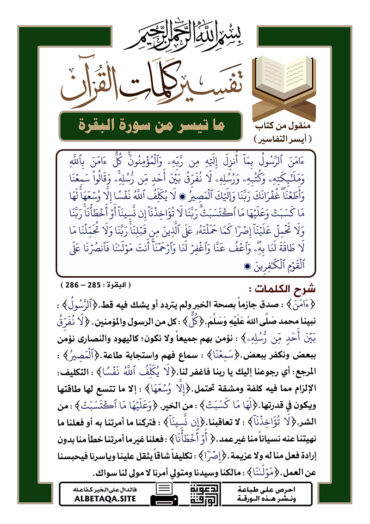 بسم الله الرحمن الرحيم
تفسير كلمات القرآن
منقول من كتاب
( أيسر التفاسير )
ما تيسر من سورة البقرة
ءَامَنَ ٱلرَّسُولُ بِمَآ أُنزِلَ إِلَيْهِ مِن رَّبِّهِۦ وَٱلْمُؤْمِنُونَۚ كُلٌّ ءَامَنَ بِٱللَّهِ
وَمَلَٰٓئِكَتِهِۦ وَكُتُبِهِۦ وَرُسُلِهِۦ لَا نُفَرِّقُ بَيْنَ أَحَدٍ مِّن رُّسُلِهِۦۚ وَقَالُوا۟ سَمِعْنَا
وَأَطَعْنَاۖ غُفْرَانَكَ رَبَّنَا وَإِلَيْكَ ٱلْمَصِيرُ ۝ لَا يُكَلِّفُ ٱللَّهُ نَفْسًا إِلَّا وُسْعَهَاۚ لَهَا
مَا كَسَبَتْ وَعَلَيْهَا مَا ٱكْتَسَبَتْۗ رَبَّنَا لَا تُؤَاخِذْنَآ إِن نَّسِينَآ أَوْ أَخْطَأْنَاۚ رَبَّنَا
وَلَا تَحْمِلْ عَلَيْنَآ إِصْرًا كَمَا حَمَلْتَهُۥ عَلَى ٱلَّذِينَ مِن قَبْلِنَاۚ رَبَّنَا وَلَا تُحَمِّلْنَا مَا
لَا طَاقَةَ لَنَا بِهِۦۖ وَٱعْفُ عَنَّا وَٱغْفِرْ لَنَا وَٱرْحَمْنَآۚ أَنتَ مَوْلَىٰنَا فَٱنصُرْنَا عَلَى
ٱلْقَوْمِ ٱلْكَٰفِرِينَ ۝
( البقرة : 285 – 286 )
شرح الكلمات :
﴿ءَامَنَ﴾ : صدق جازماً بصحة الخبر ولم يتردد أو يشك فيه قط. ﴿ٱلرَّسُولُ﴾ :
نبينا محمد صَلَّى اللهُ عَلَيْهِ وَسَلَّمَ. ﴿كُلٌّ﴾ : كل من الرسول والمؤمنين. ﴿لَا نُفَرِّقُ
بَيْنَ أَحَدٍ مِّن رُّسُلِهِۦ﴾ : نؤمن بهم جميعاً ولا نكون؛ كاليهود والنصارى نؤمن
ببعض ونكفر ببعض. ﴿سَمِعْنَا﴾ : سماع فهم واستجابة طاعة. ﴿ٱلْمَصِيرُ﴾ :
المرجع: أي رجوعنا إليك يا ربنا فاغفر لنا. ﴿لَا يُكَلِّفُ ٱللَّهُ نَفْسًا﴾ : التكليف:
الإلزام مما فيه كلفة ومشقة تحتمل. ﴿إِلَّا وُسْعَهَا﴾ : إلا ما تتسع لها طاقتها
ويكون في قدرتها. ﴿لَهَا مَا كَسَبَتْ﴾ : من الخير. ﴿وَعَلَيْهَا مَا ٱكْتَسَبَتْ﴾ : من
الشر. ﴿لَا تُؤَاخِذْنَآ﴾ : لا تعاقبنا. ﴿إِن نَّسِينَآ﴾ : فتركنا ما أمرتنا به أو فعلنا ما
نهيتنا عنه نسياناً منا غير عمد. ﴿أَوْ أَخْطَأْنَا﴾ : فعلنا غير ما أمرتنا خطأً منا بدون
إرادة فعل منا له ولا عزيمة. ﴿إِصْرًا﴾ : تكليفاً شاقاً يثقل علينا وياسرنا فيحبسنا
عن العمل. ﴿مَوْلَىٰنَا﴾ : مالكنا وسيدنا ومتولي أمرنا لا مولى لنا سواك.
احرص على طباعة
ونشر هذه الورقة
الدعوية
الورقة
فالدال على الخير كفاعله
ALBETAQA.SITE